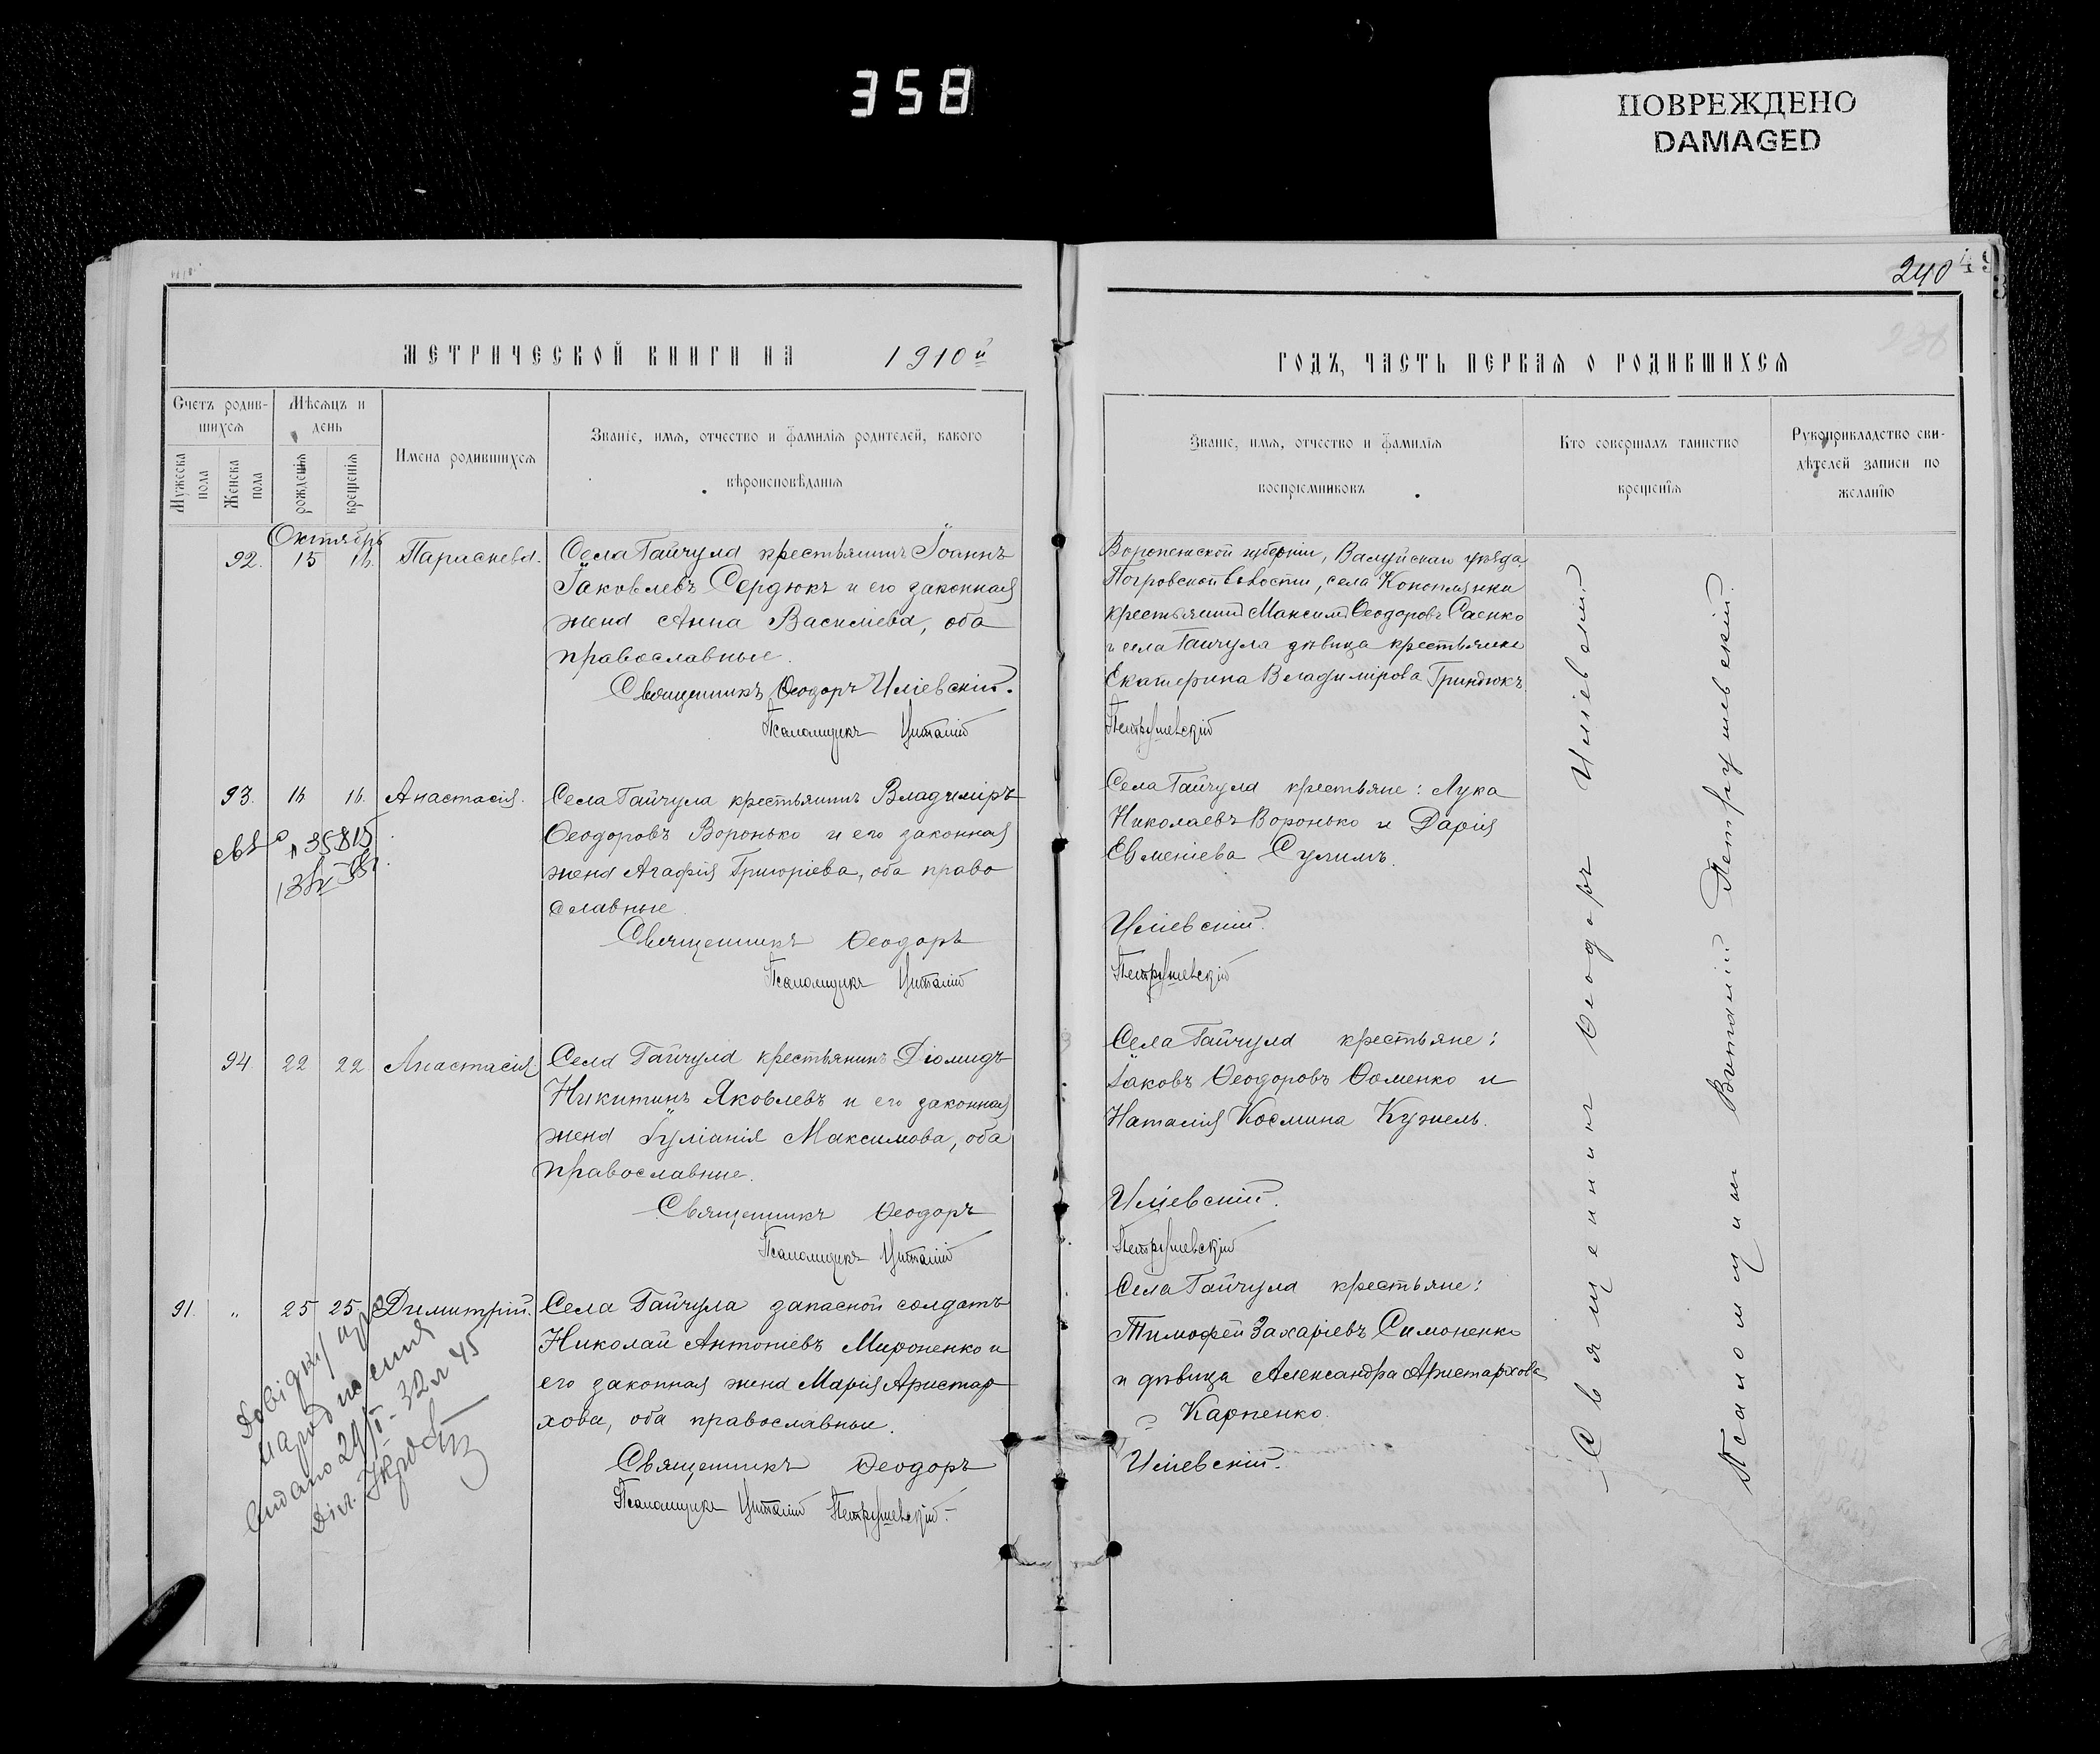 358
ПОВРЕЖДЕНО
DAMAGED
240
МЕТРИЧЕСКОЙ КНИГИ НА 1910й
Счетъ родив-
шихся
Мужеска пола
Женска пола
Мѣсяцъ и
день
рожденія
крещенія
Имена родившихся
Званіе, имя, отчество и фамилія родителей, какого
вѣроисповѣданія
Октябрь
92. 15 16. Параскева.
Села Гайчула крестьянинъ Іоаннъ
Іаковлевъ Сердюкъ и его законная
жена Анна Василіева, оба
православные.
Священникъ Ѳеодоръ Иліевскій.
Псаломщикъ Виталій
93. 16 16. Анастасія.
Села Гайчула крестьянинъ Владиміръ
Ѳеодоровъ Воронько и его законная
жена Агафія Григоріева, оба право
славные.
Священникъ Ѳеодоръ
Псаломщикъ Виталій
94. 22 22 Анастасія
Села Гайчула крестьянинъ Діомидъ
Никитинъ Яковлевъ и его законная
жена Іуліанія Максимова, оба
православные.
Священникъ Ѳеодоръ
Псаломщикъ Виталій
91. " 25 25 Димитрій.
Села Гайчула запасной солдатъ
Николай Антоніевъ Мироненко и
его законная жена Марія Аристар
хова, оба православные.
Священникъ Ѳеодоръ
Псаломщикъ Виталій Петрушевскій.
ГОДЪ, ЧАСТЬ ПЕРВАЯ О РОДИВШИХСЯ
Званіе, имя, отчество и фамилія
воспріемниковъ
Кто совершалъ таинство
крещенія
Рукоприкладство сви-
дѣтелей записи по
желанію
Воронежской губерніи, Валуйскаго уѣзда,
Погровской волости, села Конопляки
крестьянинъ Максимъ Ѳеодоровъ Саенко
и села Гайчула дѣвица крестьянка
Екатерина Владимірова Гриндюкъ.
Петрушевскій
Села Гайчула крестьяне: Лука
Николаевъ Воронько и Дарія
Евменіева Сулимъ.
Иліевскій.
Петрушевскій
Села Гайчула крестьяне:
Іаковъ Ѳеодоровъ Ѳоменко и
Наталія Космина Кужель.
Иліевскій.
Петрушевскій
Села Гайчула крестьяне:
Тимофей Захаріевъ Симоненко
и дѣвица Александра Аристархова
Карпенко.
Иліевскій.
Священникъ Ѳеодоръ Иліевскій
Псаломщикъ Виталій Петрушевскій.